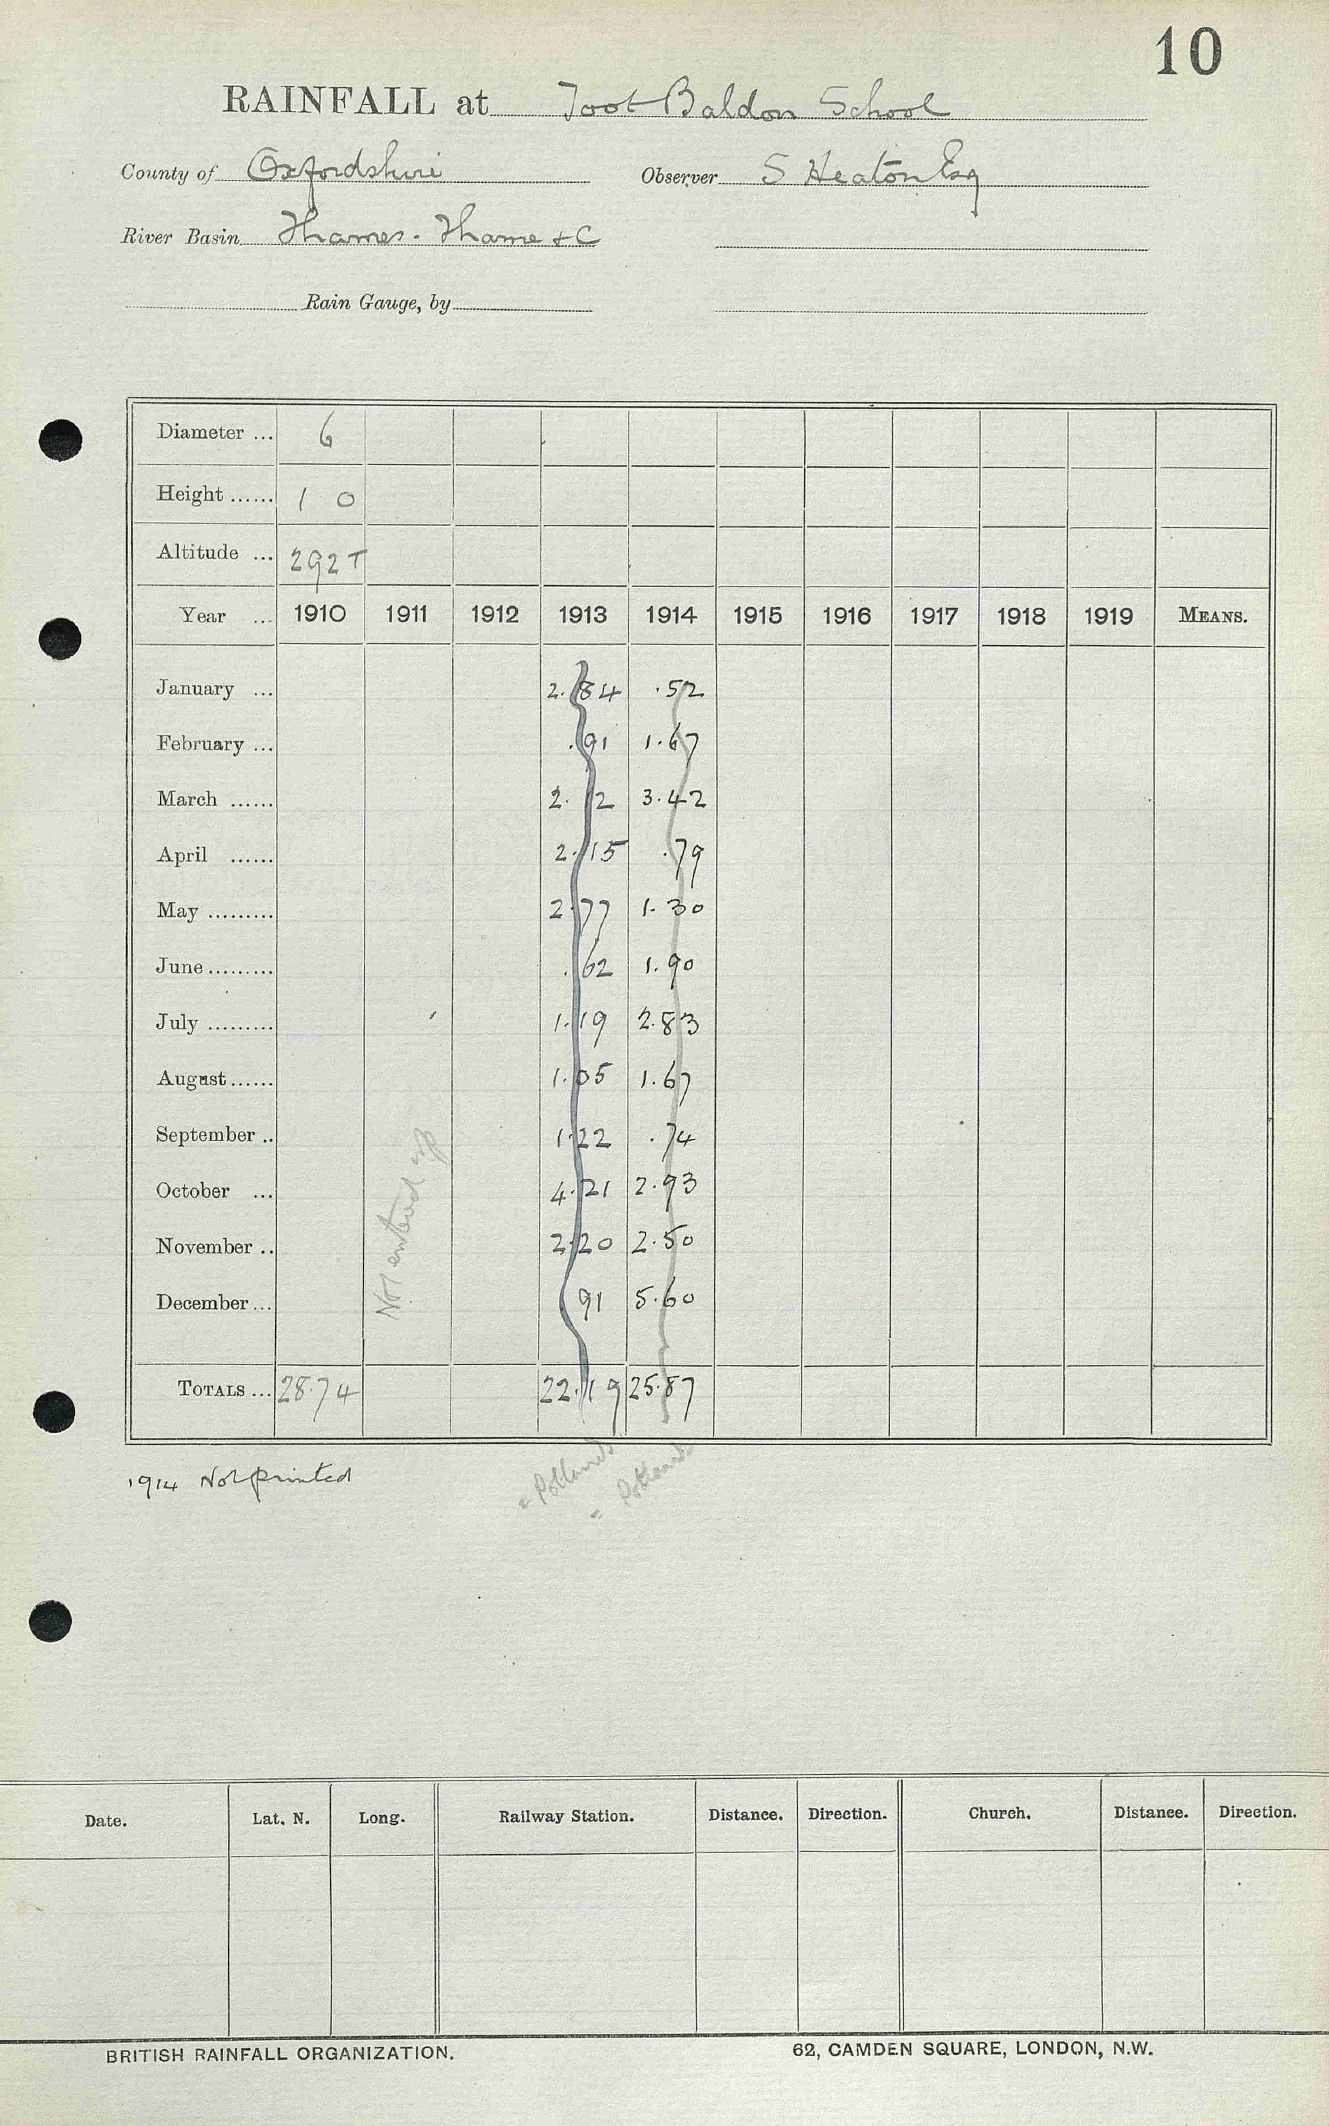 10
RAINFALL at Toot Baldon School
County of Oxfordshire Observer S Heaton Esq
River Basin Thames - Thame + C
Rain Gauge, by
Diameter ... 6
Height ...... 1 0
Altitude ... 292 T
Year ... 1910 1911 1912 1913 1914 1915 1916 1917 1918 1919 MEANS.
January ... 2.84 .52
February ... .91 1.67
March ...... 2.12 3.42
April ...... 2.15 .79
May ......... 2.77 1.30
June ......... .62 1.90
July ......... 1.19 2.83
August ...... 1.05 1.67
September .. 1.22 .74
October ... 4.21 2.93
November .. 2.20 2.50
December ... .91 5.60
Not entered up
TOTALS ... 28.74 22.19 25.87
1914 Not printed
Date. Lat. N. Long. Railway Station. Distance. Direction. Church. Distance. Direction.
BRITISH RAINFALL ORGANIZATION. 62, CAMDEN SQUARE, LONDON, N.W.